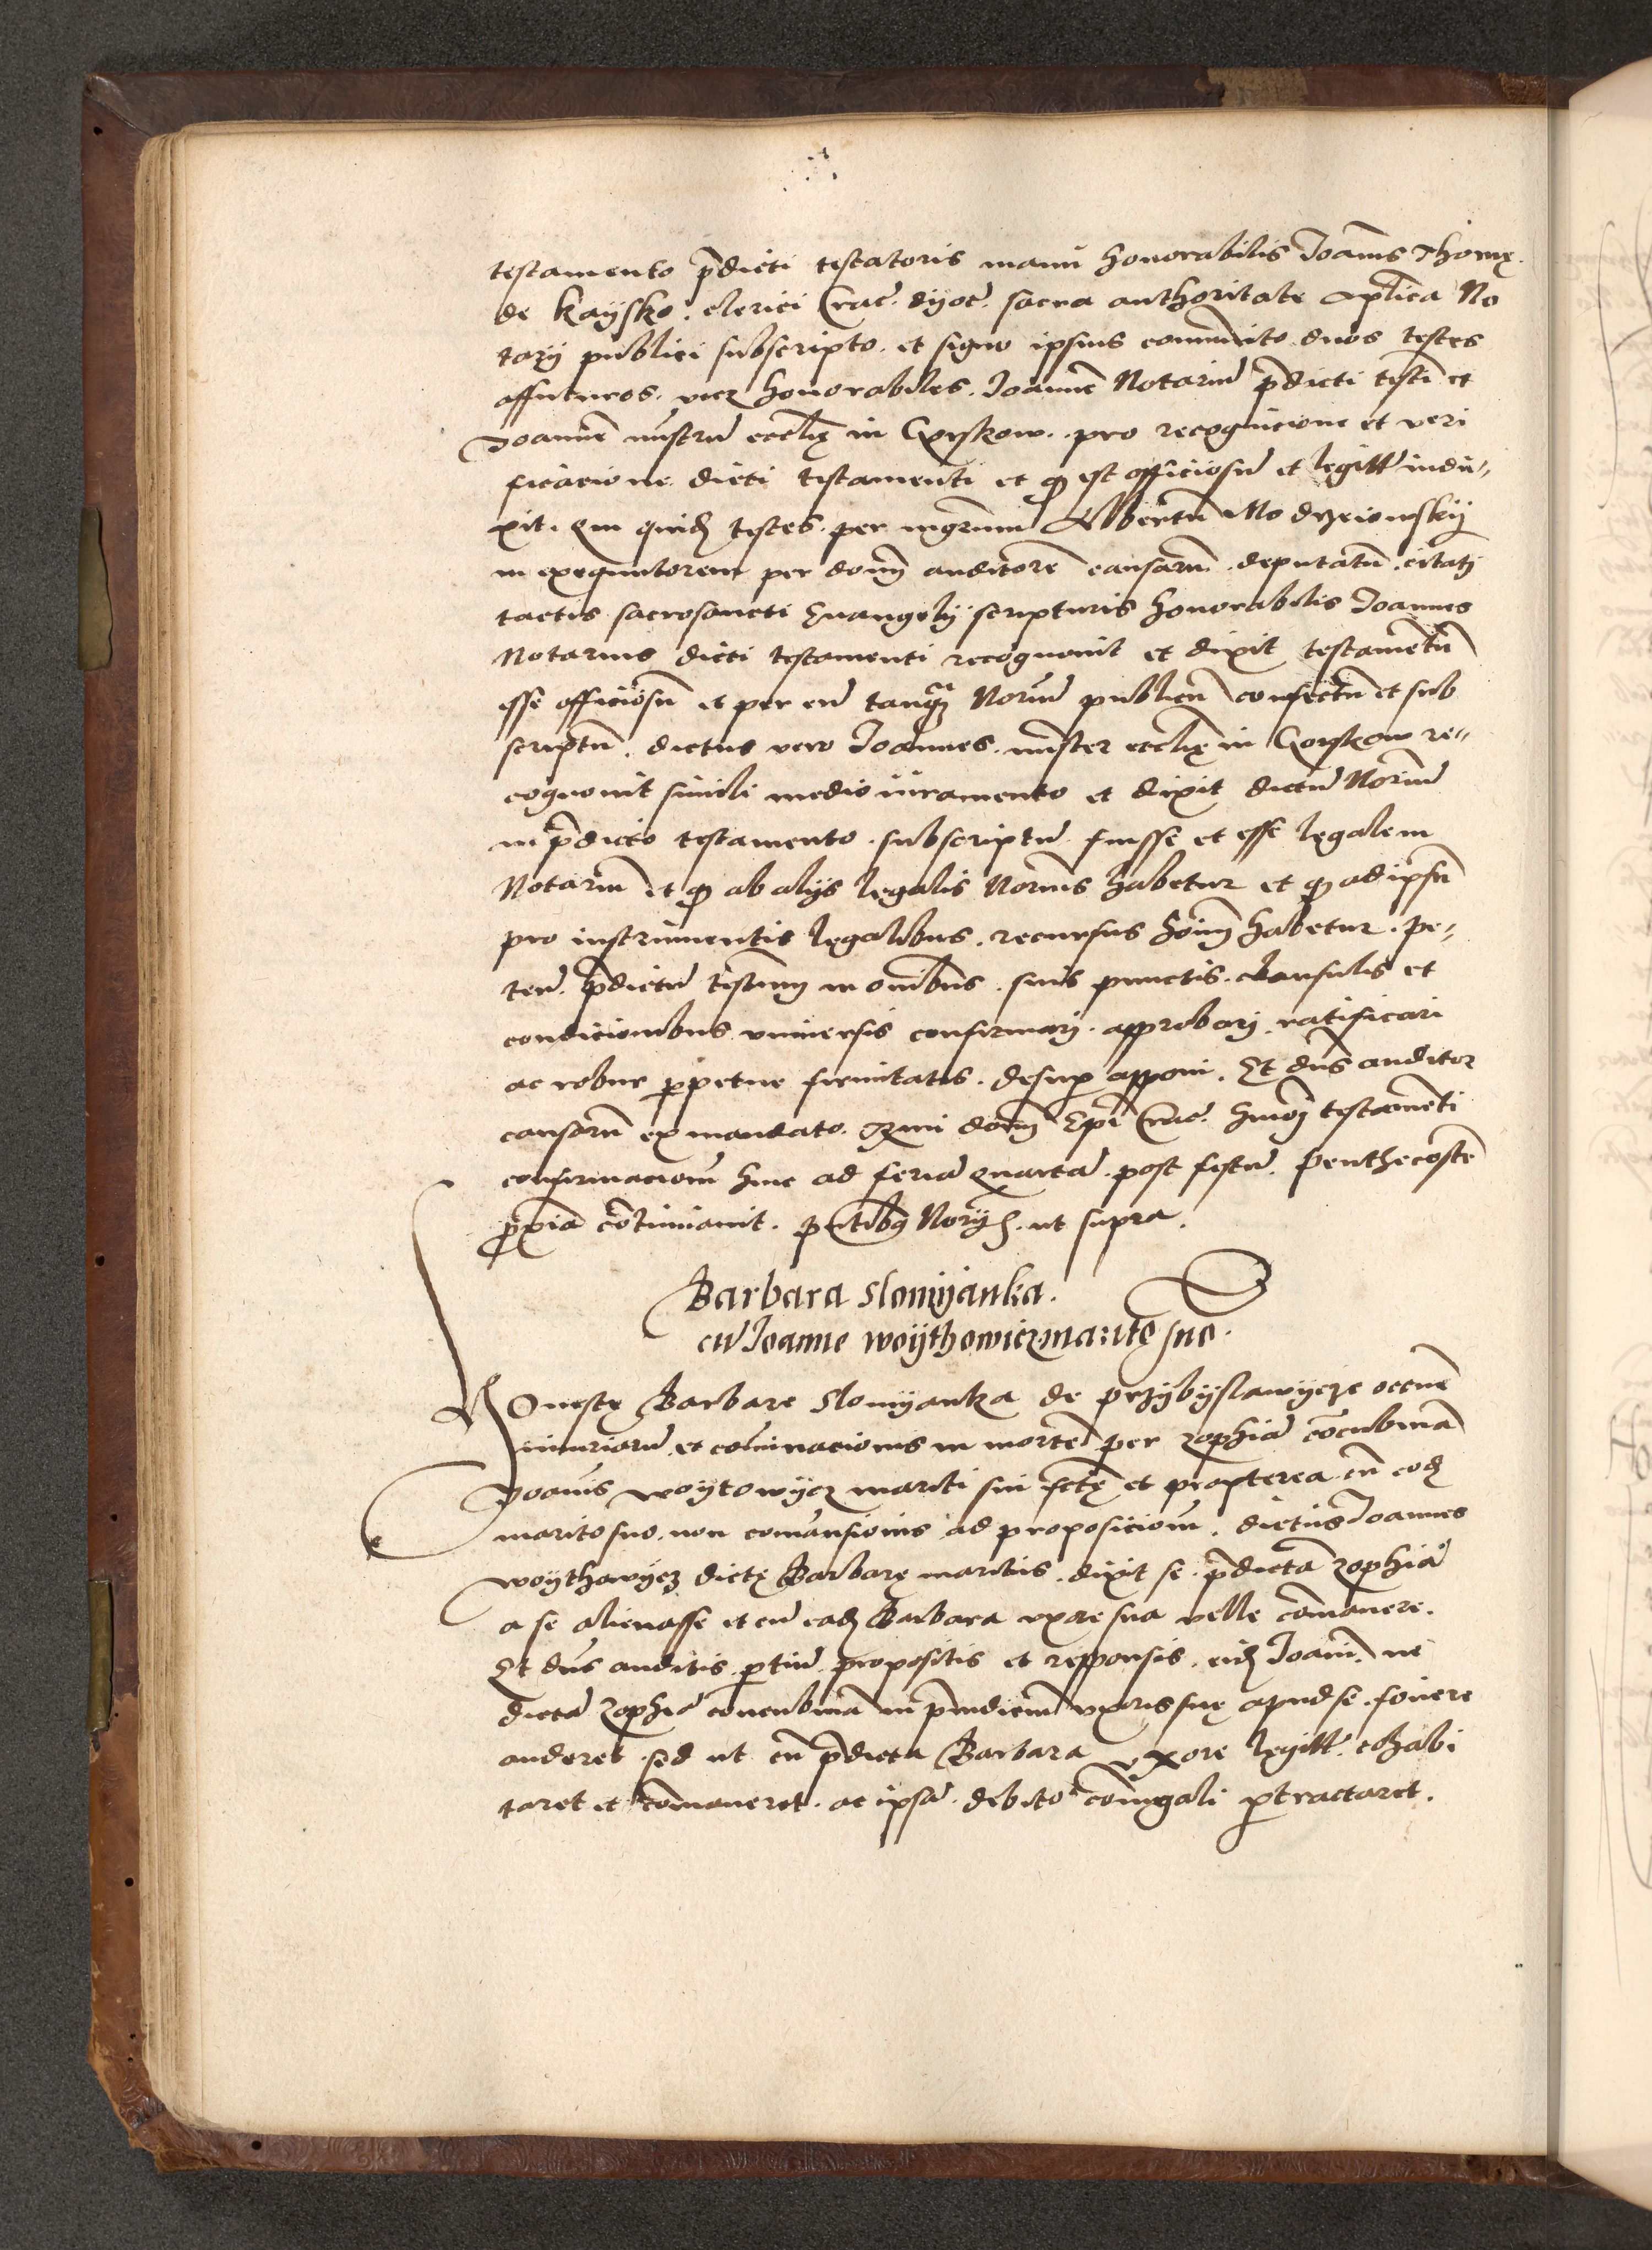 testamento p̄dicti testatoris manu honorabilis Joan̄is Thomę
de Kaysko. clerici Crac̄. dyoc̄. sacra authoritate aplīca No
tarij publici subscripto. et signo ipsius com̄unito duos testes
affuturos. vicz honorabiles. Joannē Notariū p̄dicti testī et
Joannē mīstrū eccl̄ię in Gorzkow. pro recognicione et veri
ficacione dicti testamenti et q̄ est officiosū et legitt indu,,
xit. Qui quidē testes per mgr̄um Albertū Modrzeiowskij
in exequutorem per dom̄ auditorē causarū deputatū. citatj
tactis sacrosancti Euangelij scripturis honorabilis Joannes
Notarius dicti testamenti recognouit et dixit testamētū
esse officiosū et per eū tanq̄ Norīū publicū confectū et sub
scriptū. dictus vero Joannes. mīster eccl̄ię in Gorzkow re,,
cognouit simili medio iuramento et dixit dictū Norīū
in p̄dicto testamento. subscriptū fuisse et esse legalem
Notariū et q̄ ab alijs legalis Norīus habetur et q̄ ad ipsū
pro instrumentis legalibus. recursus hoīm habetur. pe,,
teñ. p̄dictū testm̄ in om̄ibus. suis punctis. clausulis et
condicionibus vniuersis confirmarj. approbarj ratificari
ac robur ppetue firmitatis. desup apponi. Et dn̄s auditor
causarū ex mandato. Rmi dom̄ Epī Crac̄. hmōi testamēti
confirmacionē hinc ad feriā quartā. post festū. Penthecostē
p̄xīa cōtinuauit. pn̄tibq Norijs. ut supra.
Barbara Slomyanka.
cū Joanne woythowicz marito suo.
Honestę Barbare Slomyanka de przybyslawycze occnē
iniuriarū et cōminacionis in mortē per zophiā cōcubinā
Joan̄is woytowycz mariti sui fctę et propterea cū eodē
marito suo non comansionis ad proposicionē. dictus Joannes
woythowycz dictę Barbarę maritus. dixit se. p̄dictā zophiā
a se alienasse et cū eadē Barbara vxore sua velle cōmanere.
Et dn̄s auditis ptiū propositis et responsis. eidē Joannī. ne
dictā zophiā concubinā in p̄iudiciū vxoris suę apud se. fouere
auderet. sed ut cū p̄dicta Barbara vxore legitt. cohabi
taret et cōmaneret. ac ipsā. debito coniugali ptractaret.